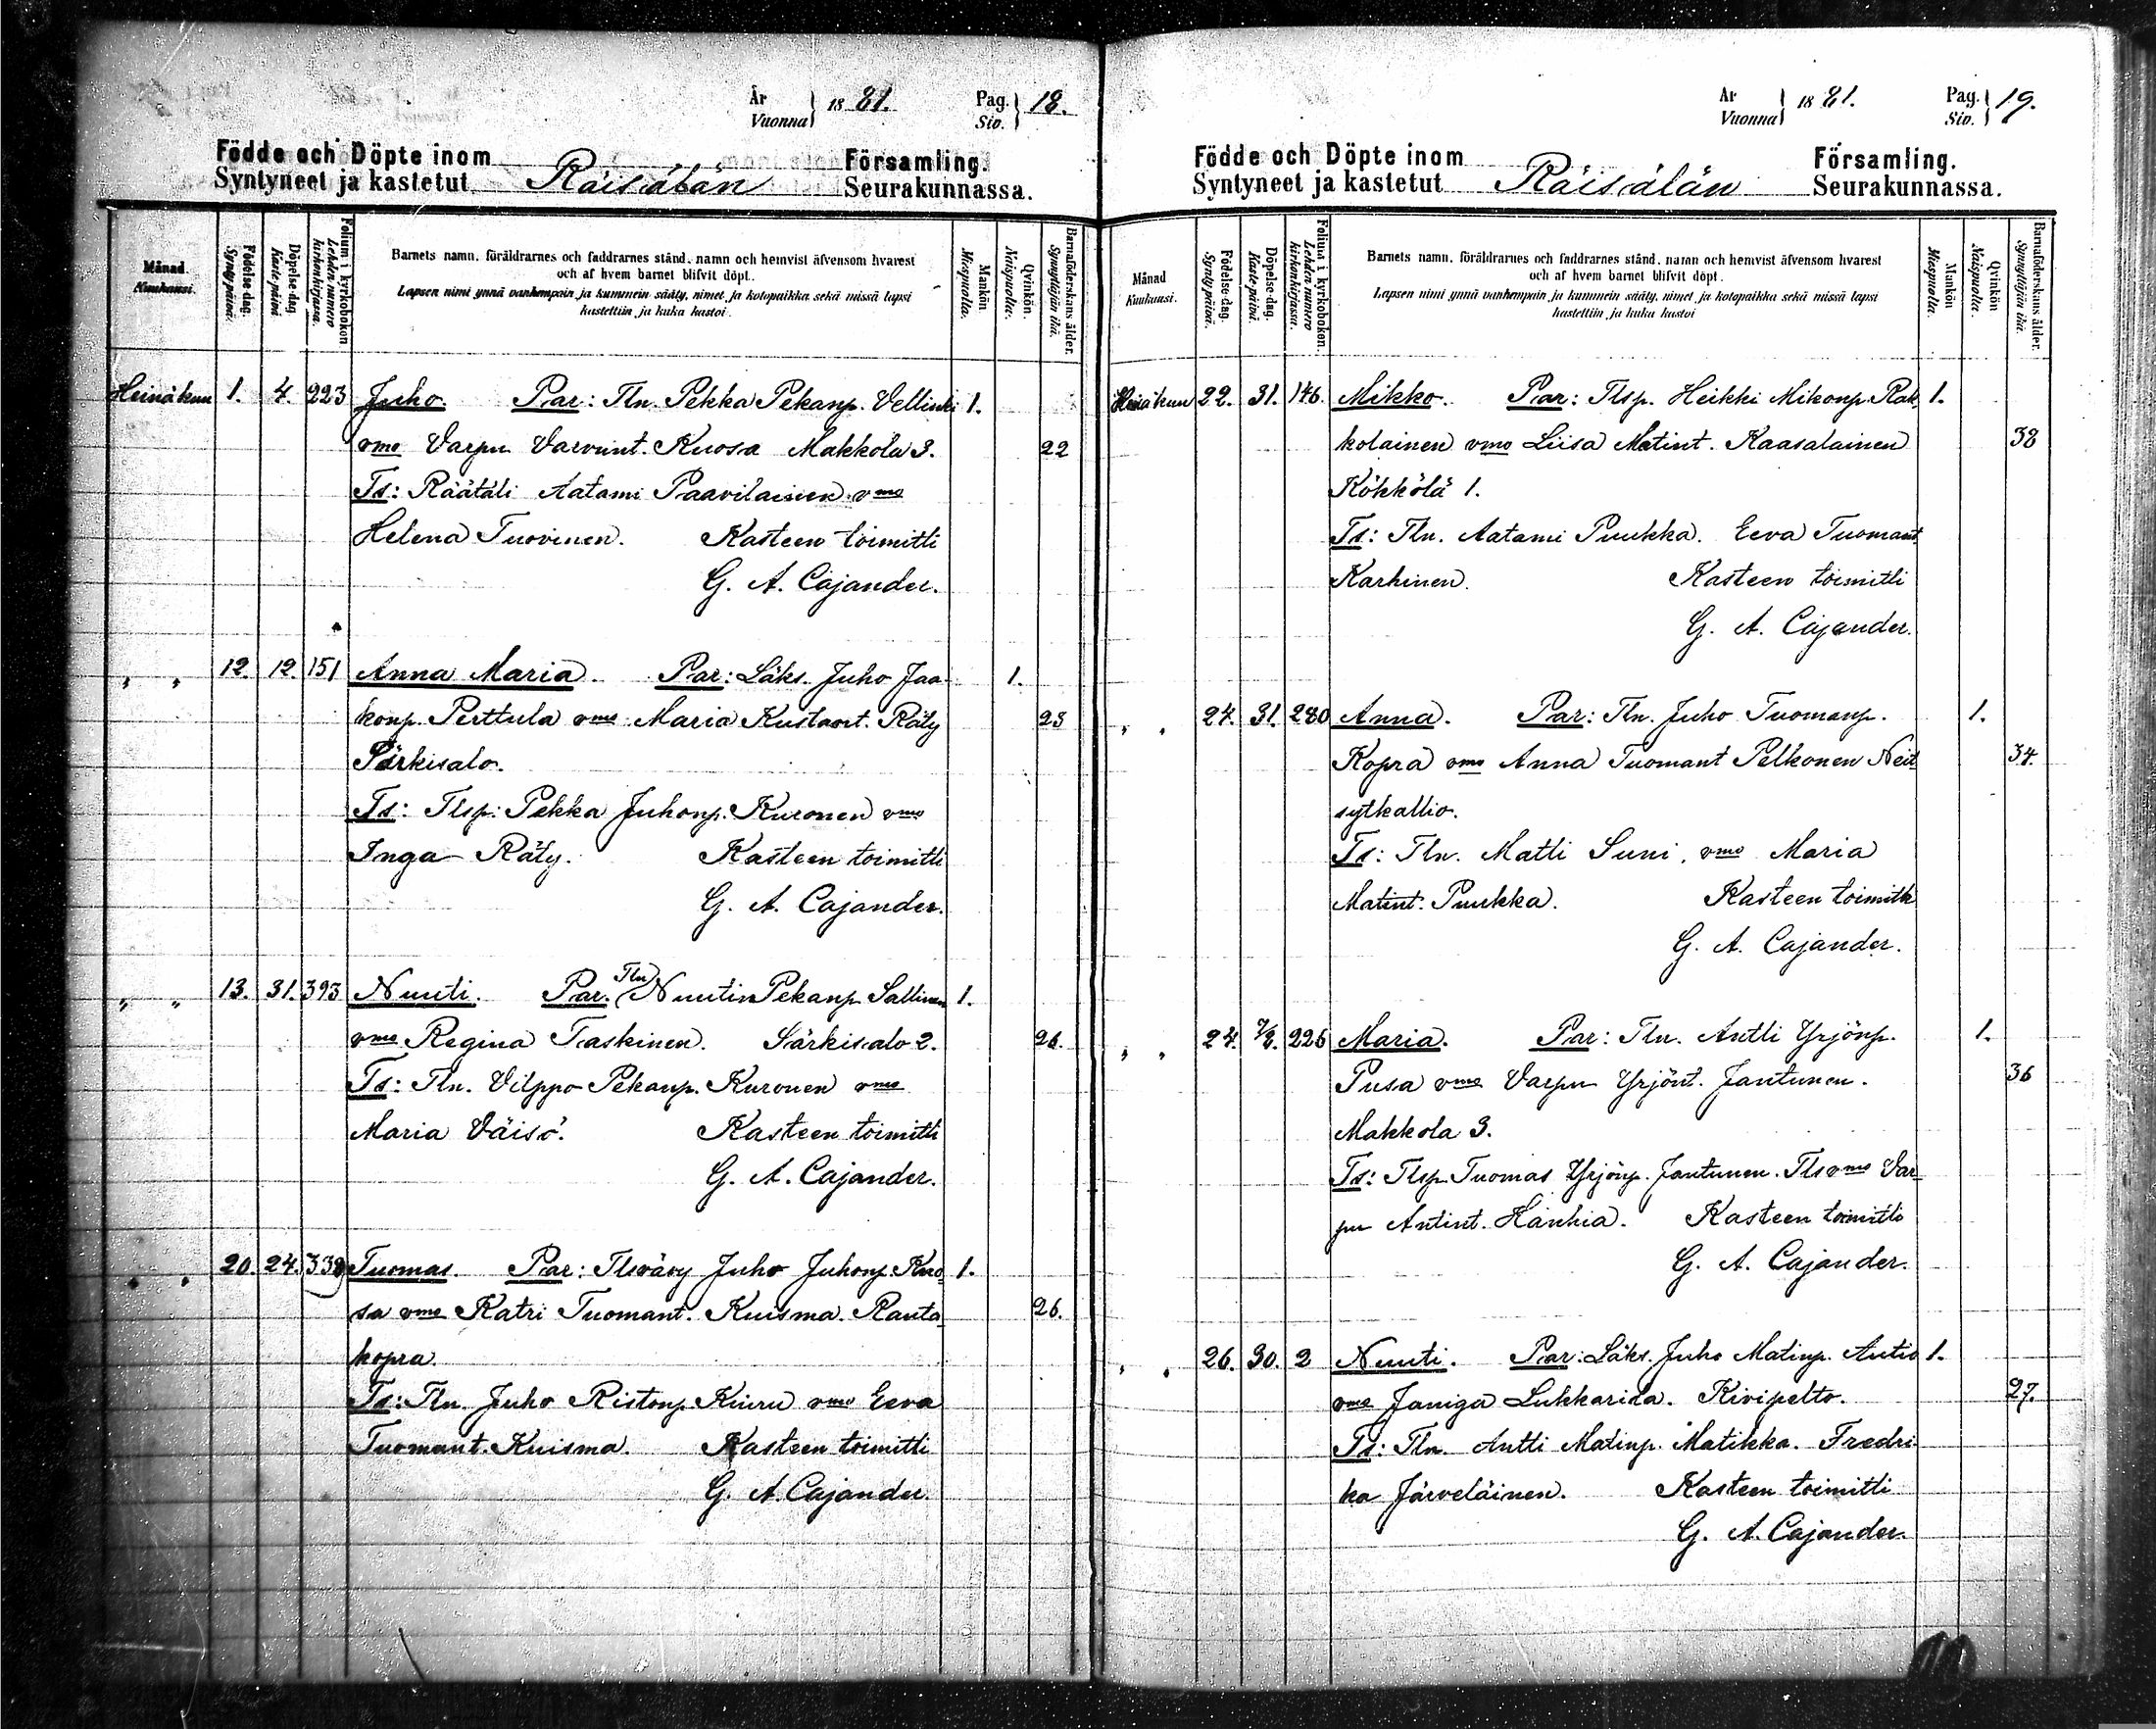 År
Vuonna } 1881. Pag.
Siv. } 18.
Födde och Döpte inom Församling.
Syntyneet ja kastetut Räisälän Seurakunnassa.
Månad.
Kuukausi.
Födelse-dag.
Synty-päivä.
Döpelse-dag.
Kaste-päivä
Folium i kyrkoboken
Lehden numero
kirkonkirjassa.
Barnets namn, föräldrarnes och faddrarnes stånd, namn och hemvist äfvensom hvarest
och af hvem barnet blifvit döpt.
Lapsen nimi ynnä vanhempain ja kummein sääty, nimet ja kotopaikka sekä missä lapsi
kastettiin ja kuka kastoi.
Mankön
Miespuolia.
Qvinkön.
Naispuolia.
Barnaföderskans ålder.
Synnyttäjän ikä.
Heinäkuu 1. 4. 223 Juho. Par: Tln. Pekka Pekanp. Vellinki 1.
vmo Varpu Varvunt. Kuosa Makkola 3. 22
Ts: Räätäli Aatami Paavilainen vmo
Helena Tuovinen. Kasteen toimitti
G. A. Cajander.
" " 12. 12. 151 Anna Maria. Par: Läks. Juho Jaa- 1.
konp. Perttula vmo Maria Kustaant. Räty 23
Särkisalo.
Ts: Tlsp: Pekka Juhonp. Kuronen vmo
Inga Räty. Kasteen toimitti
G. A. Cajander.
" " 13. 31. 393 Nuuti. Par. Tln Nuutin Pekanp. Sallinen 1.
vmo Regina Taskinen. Särkisalo 2. 26.
Ts: Tln. Vilppo Pekanp. Kuronen vmo
Maria Väisö. Kasteen toimitti
G. A. Cajander.
" " 20. 24. 338 Tuomas. Par: Tlsvävy Juho Juhonp. Kuo- 1.
sa vmo Katri Tuomant. Kuisma. Rauta- 26.
kopra.
Ts: Tln. Juho Ristonp. Kiuru vmo Eeva
Tuomant. Kuisma. Kasteen toimitti
G. A. Cajander.
År
Vuonna } 1881. Pag.
Siv. } 19.
Födde och Döpte inom Församling.
Syntyneet ja kastetut Räisälän Seurakunnassa.
Månad
Kuukausi.
Födelse-dag.
Synty-päivä.
Döpelse-dag.
Kaste-päivä.
Folium i kyrkoboken.
Lehden numero
kirkonkirjassa.
Barnets namn, föräldrarnes och faddrarnes stånd, namn och hemvist äfvensom hvarest
och af hvem barnet blifvit döpt.
Lapsen nimi ynnä vanhempain ja kummein sääty, nimet ja kotopaikka sekä missä lapsi
kastettiin ja kuka kastoi
Mankön
Miespuolia.
Qvinkön
Naispuolia.
Barnaföderskans ålder.
Synnyttäjän ikä.
Heinäkuu 22. 31. 146. Mikko. Par: Tlsp. Heikki Mikonp. Rak- 1.
kolainen vmo Liisa Matint. Kaasalainen 38
Kökkölä 1.
Ts: Tln. Aatami Puukka. Eeva Tuomant.
Karhinen. Kasteen toimitti
G. A. Cajander.
" " 24. 31. 280 Anna. Par: Tln. Juho Tuomanp. 1.
Kopra vmo Anna Tuomant Pelkonen Neit- 34.
sytkallio.
Ts: Tln. Matti Suni, vmo Maria
Matint. Puukka. Kasteen toimitti
G. A. Cajander.
" " 24. 7/8. 226 Maria. Par: Tln. Antti Yrjönp. 1.
Pusa vmo Varpu Yrjönt. Jantunen. 36
Makkola 3.
Ts: Tlsp. Tuomas Yrjönp. Jantunen. Tls vmo Var-
pu Antint. Hänhia. Kasteen toimitti
G. A. Cajander.
" " 26. 30. 2 Nuuti. Par: Läks. Juho Matinp. Autio 1.
vmo Janiga Lukkarida. Kivipelto. 27.
Ts: Tln. Antti Matinp. Matikka. Fredri-
ka Järveläinen. Kasteen toimitti
G. A. Cajander.